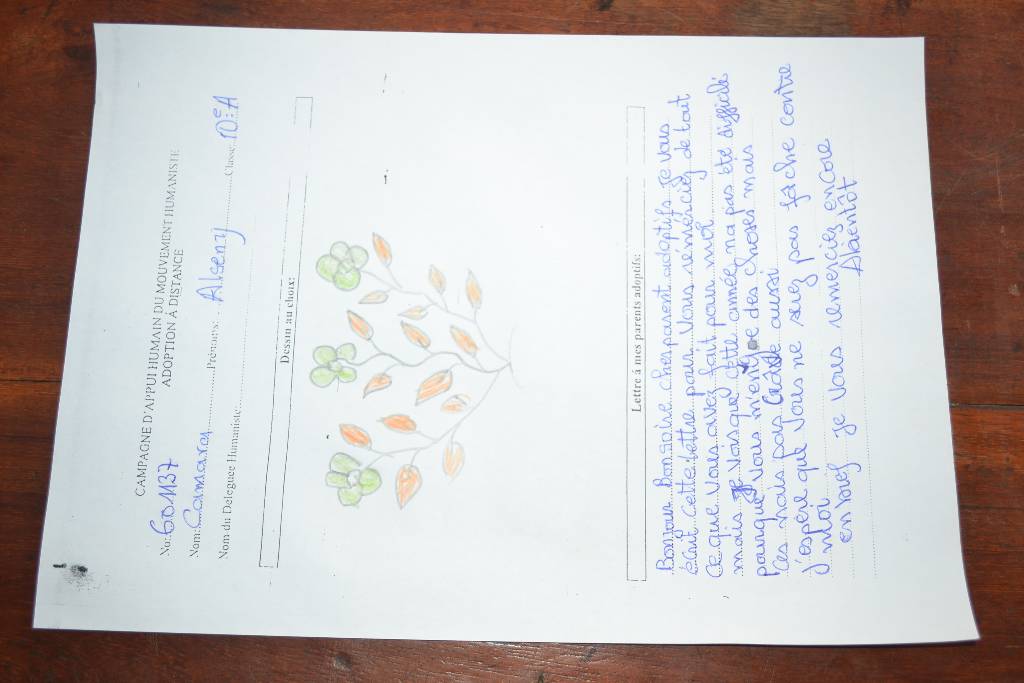 CAMPAGNE D'APPUI HUMAIN DU MOUVEMENT HUMANISTE
ADOPTION À DISTANCE
No: 601137
Nom: Camara Prénoms: Alseny Classe: 10e A
Nom du Deleguee Humaniste:
Dessin au choix:
Lettre á mes parents adoptifs:
Bonjour Bonsoire cher parent adoptifs je vous
écrit cette lettre pour vous rémérciez de tout
ce que vous avez fait pour moi
mais je vois que cette année n'a pas été difficile
parceque vous des choses mais
aussi
j'espère que vous ne serez pas fâche contre
moi
en bref je vous remerciez encore
Abientôt